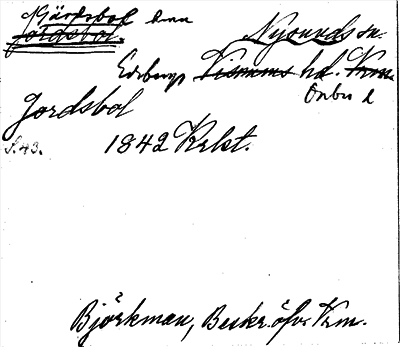 Gärdsbol hmn
Jordsbol. Nysunds sn.
Edsbergs Visnums hd. Vrm.
Örebro l
Jordsbol
S. 43. 1842 Krlst.
Björkman, Beskr. öfv. Vrm.